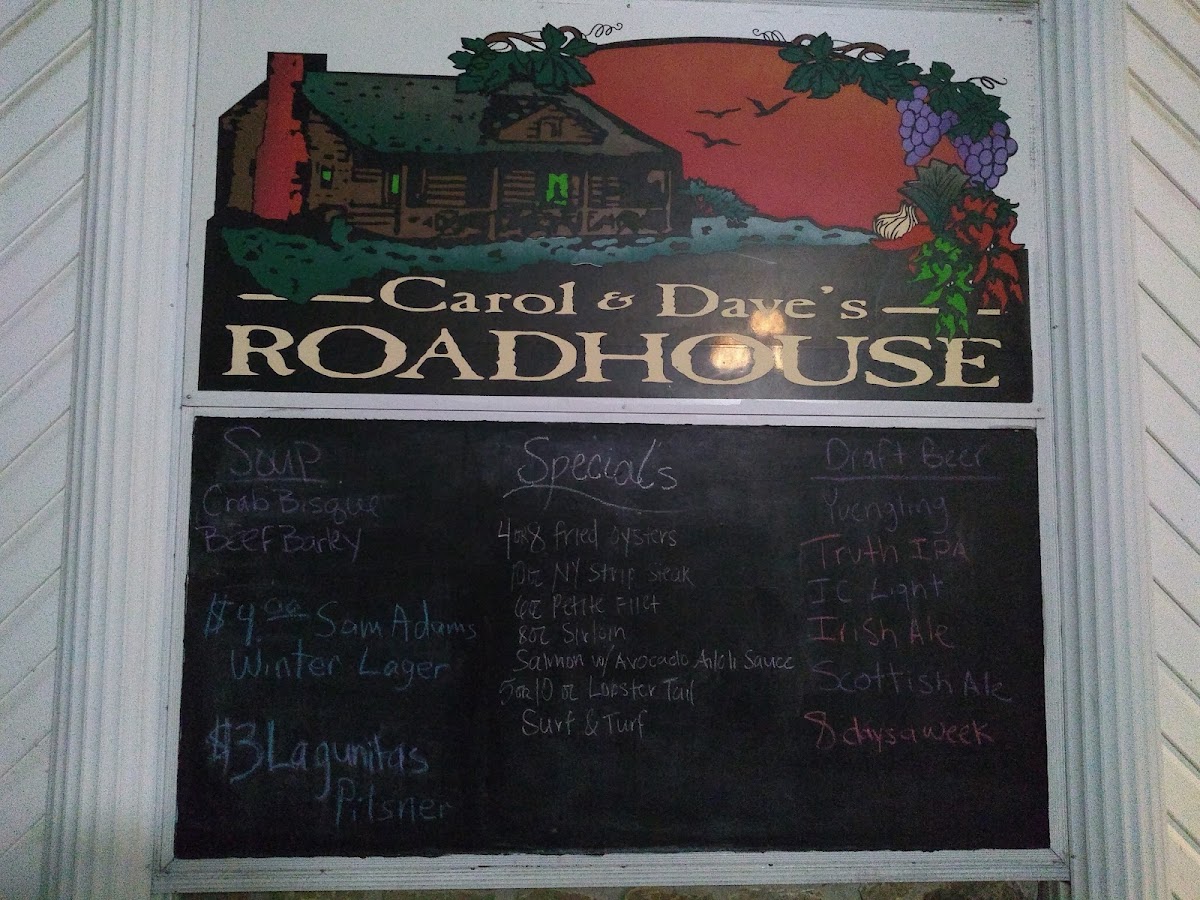 Carol & Dave's
ROADHOUSE
Soup
Crab Bisque
Beef Barley
$4.00 Sam Adams
Winter Lager
$3 Lagunitas
Pilsner
Specials
4 or 8 fried oysters
10oz NY Strip Steak
6oz Petite Filet
8oz Sirloin
Salmon w/ Avocado Sauce
5 oz/10 oz Lobster Tail
Surf & Turf
Draft Beer
Yuengling
Truth IPA
IC Light
Irish Ale
Scottish Ale
8 days a week